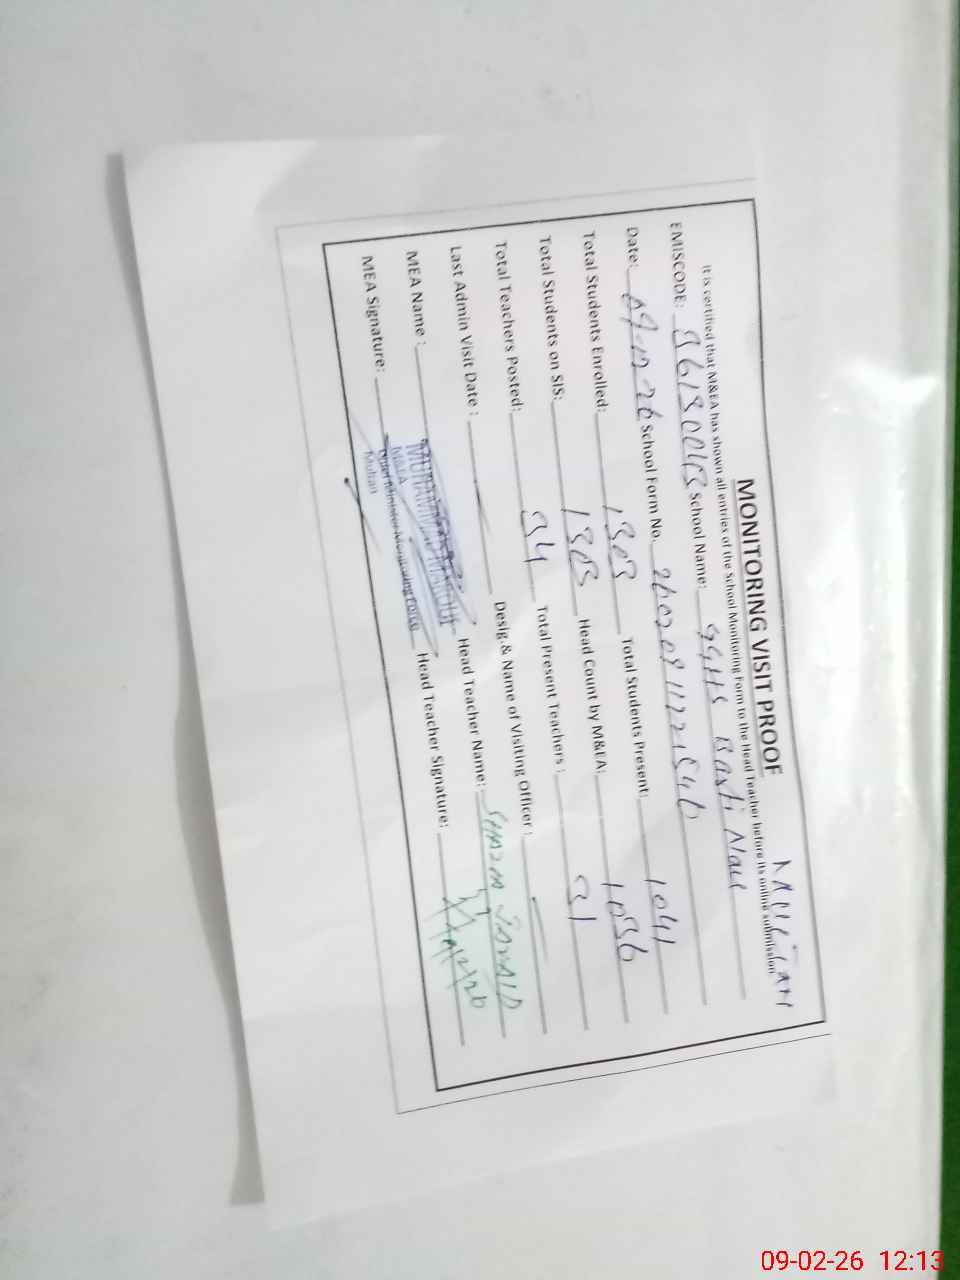 MULTAN
MONITORING VISIT PROOF
It is certified that M&EA has shown all entries of the School Monitoring Form to the Head Teacher before its online submission.
EMISCODE: School Name: GGHS Basti Nau
Date: 09-02-26 School Form No.
Total Students Enrolled: 1303 Total Students Present: 1041
Total Students on SIS: 1303 Head Count by M&EA: 1036
Total Teachers Posted: 34 Total Present Teachers: 31
Last Admin Visit Date: Desig.& Name of Visiting Officer:
MEA Name: MUHAMMAD Head Teacher Name: SHAZIA
M&EA
MEA Signature: Chief Minister Monitoring Force Head Teacher Signature: 9/2/26
Multan
09-02-26 12:13